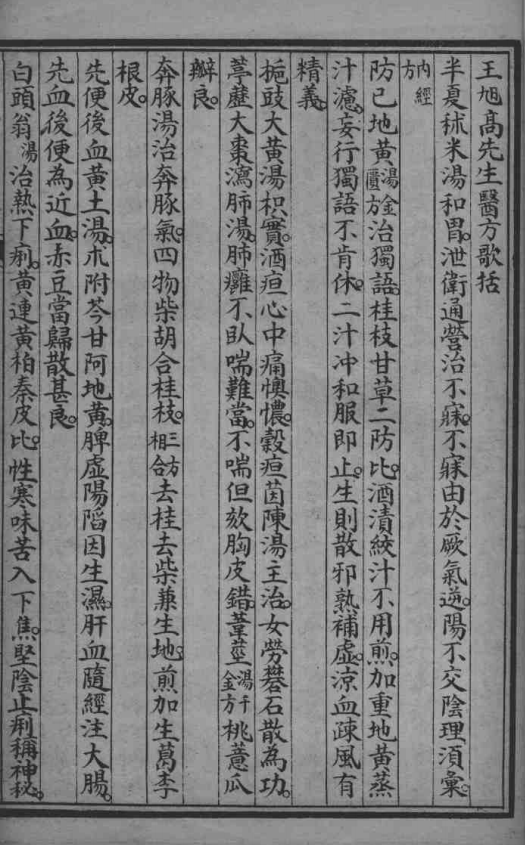 王旭高先生醫方歌括
半夏秫米湯和胃。泄衛通營治不寐。不寐由於厥氣逆。陽不交陰理須彙。
內經方
防己地黃湯金匱方治獨語。桂枝甘草二防比。酒漬絞汁不用煎。加重地黃蒸
汁濾。妄行獨語不肯休。二汁冲和服即止。生則散邪熟補虛。涼血疎風有
精義。
梔豉大黃湯枳實。酒疸心中痛懊憹。穀疸茵陳湯主治。女勞礬石散為功。
葶藶大棗瀉肺湯。肺癰不臥喘難當。不喘但欬胸皮錯。葦莖湯千金方桃薏瓜
瓣良。
奔豚湯治奔豚氣。四物柴胡合桂枝。三方相合去桂去柴兼生地。煎加生葛李
根皮。
先便後血黃土湯。朮附芩甘阿地黃。脾虛陽陷因生濕。肝血隨經注大腸。
先血後便為近血。赤豆當歸散甚良。
白頭翁湯治熱下痢。黃連黃柏秦皮比。性寒味苦入下焦。堅陰止痢稱神秘。